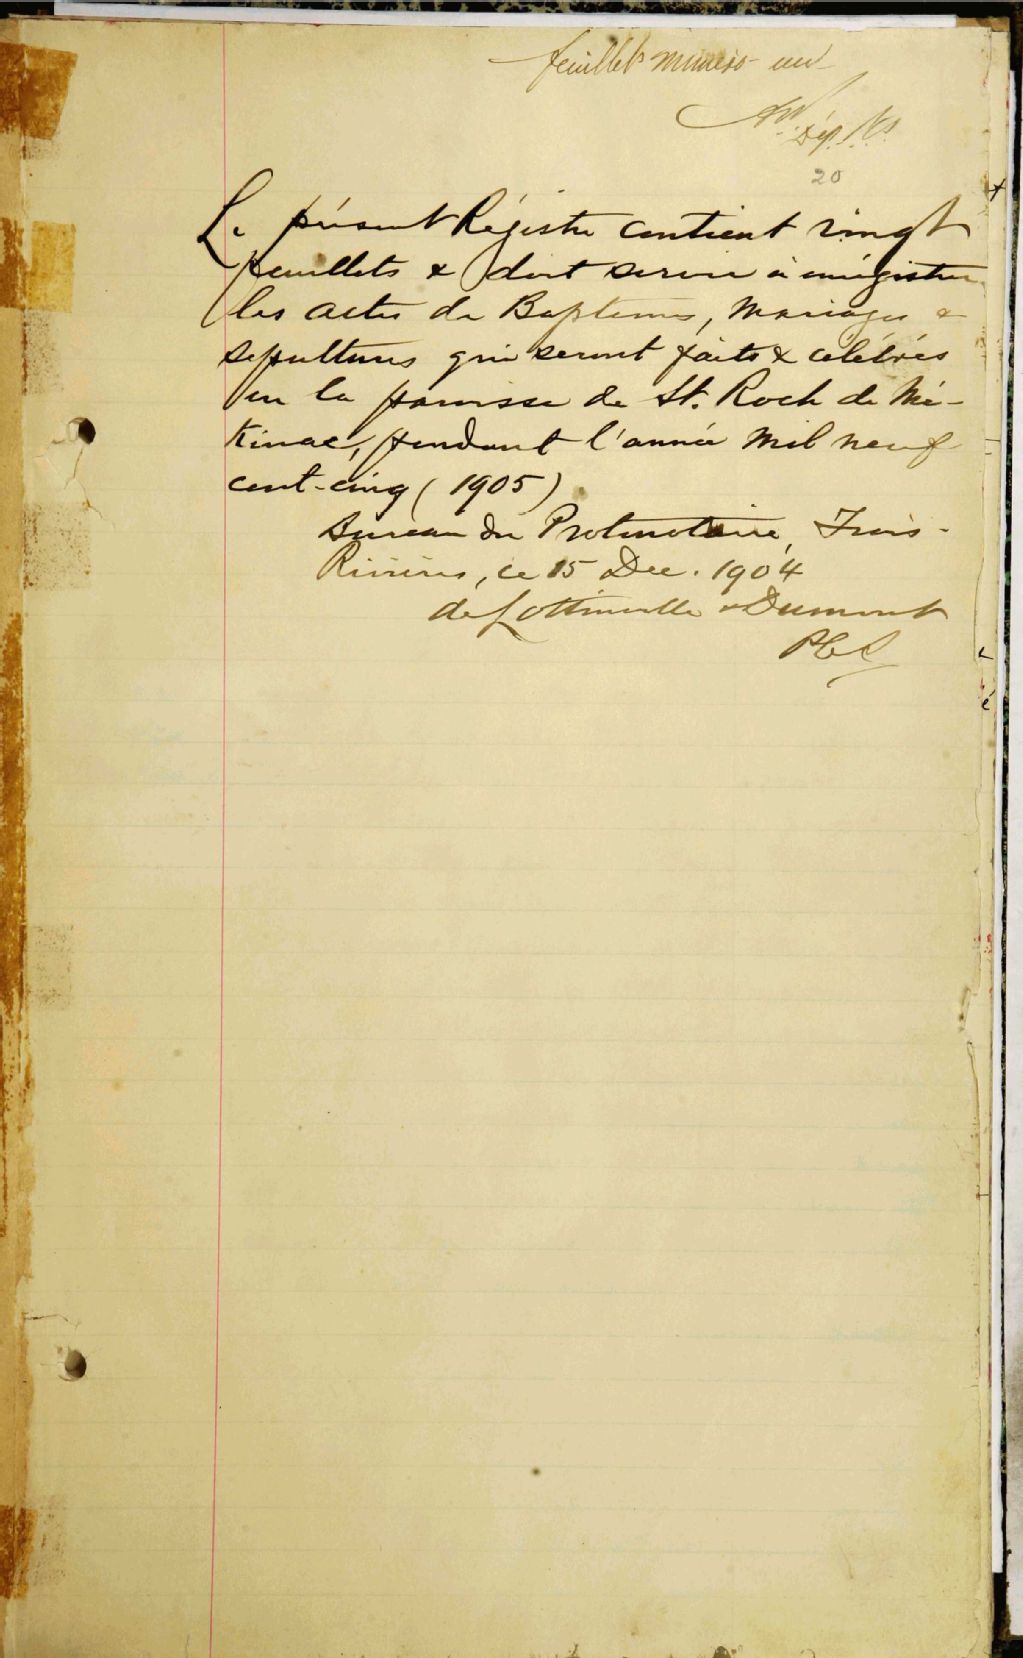 feuillet numéro un
Dép.
20
Le présent Régistre contient vingt
feuillets & doit servir à enrégistrer
les actes de Baptemes, Mariages &
sepultures qui seront faits & célébrés
en la paroisse de St. Roch de Mé-
kinac, pendant l'année mil neuf
cent-cinq (1905)
Bureau du Protonotaire, Trois-
Rivières, ce 15 Dec. 1904
de Lottinville & Dumont
PCS